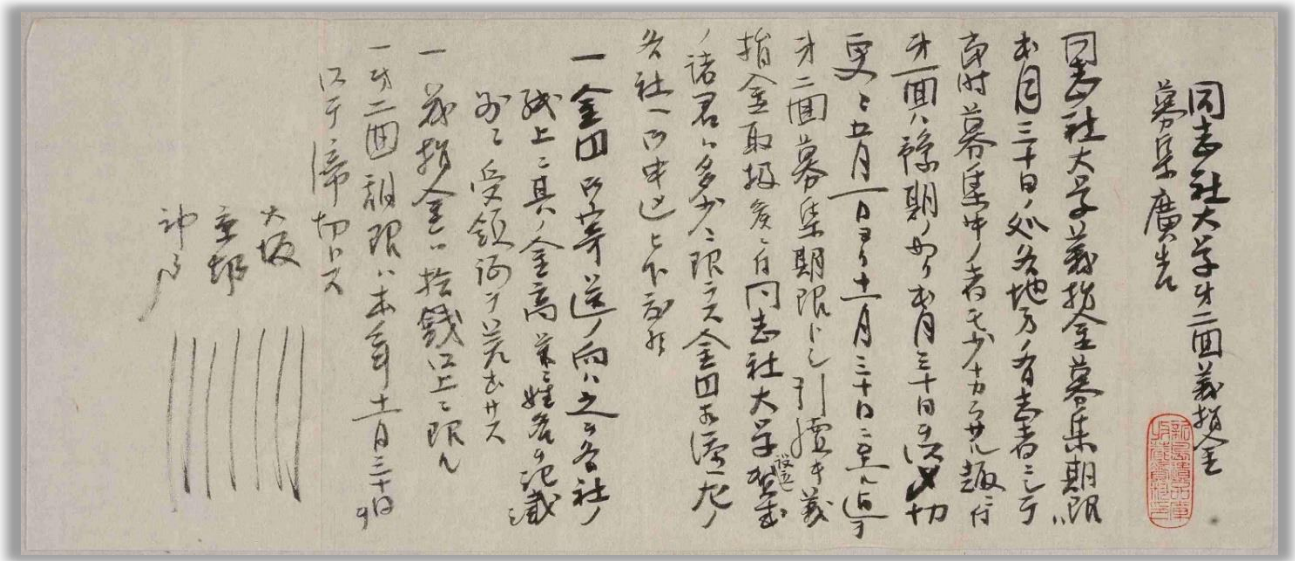 同志社大学第二回義捐金
募集廣告
同志社大学義捐金募集期限ハ
本月三十日ノ処各地方ノ有志者ニシテ
当時募集中ノ者モ少ナカラサル趣ニ付
第一回ハ豫期ノ如ク本月三十日ヲ以〆切
更ニ五月一日ヨリ十一月三十日ニ至ル迄ヲ
第二回募集期限トシ引續キ義
捐金取扱候ニ付同志社大学設立
ノ諸君ハ多少ニ限ラス金円
各社ヘ御申込ヒ下
一金円御寄送ノ向ハ之ヲ各社ノ
紙上ニ其ノ金高並ニ姓名ヲ記載
別ニ受領証ヲ差出サス
一義捐金ハ拾錢以上ニ限ル
一第二回期限ハ本年十一月三十日ヲ
以テ締切トス
大坂
京都
神戸